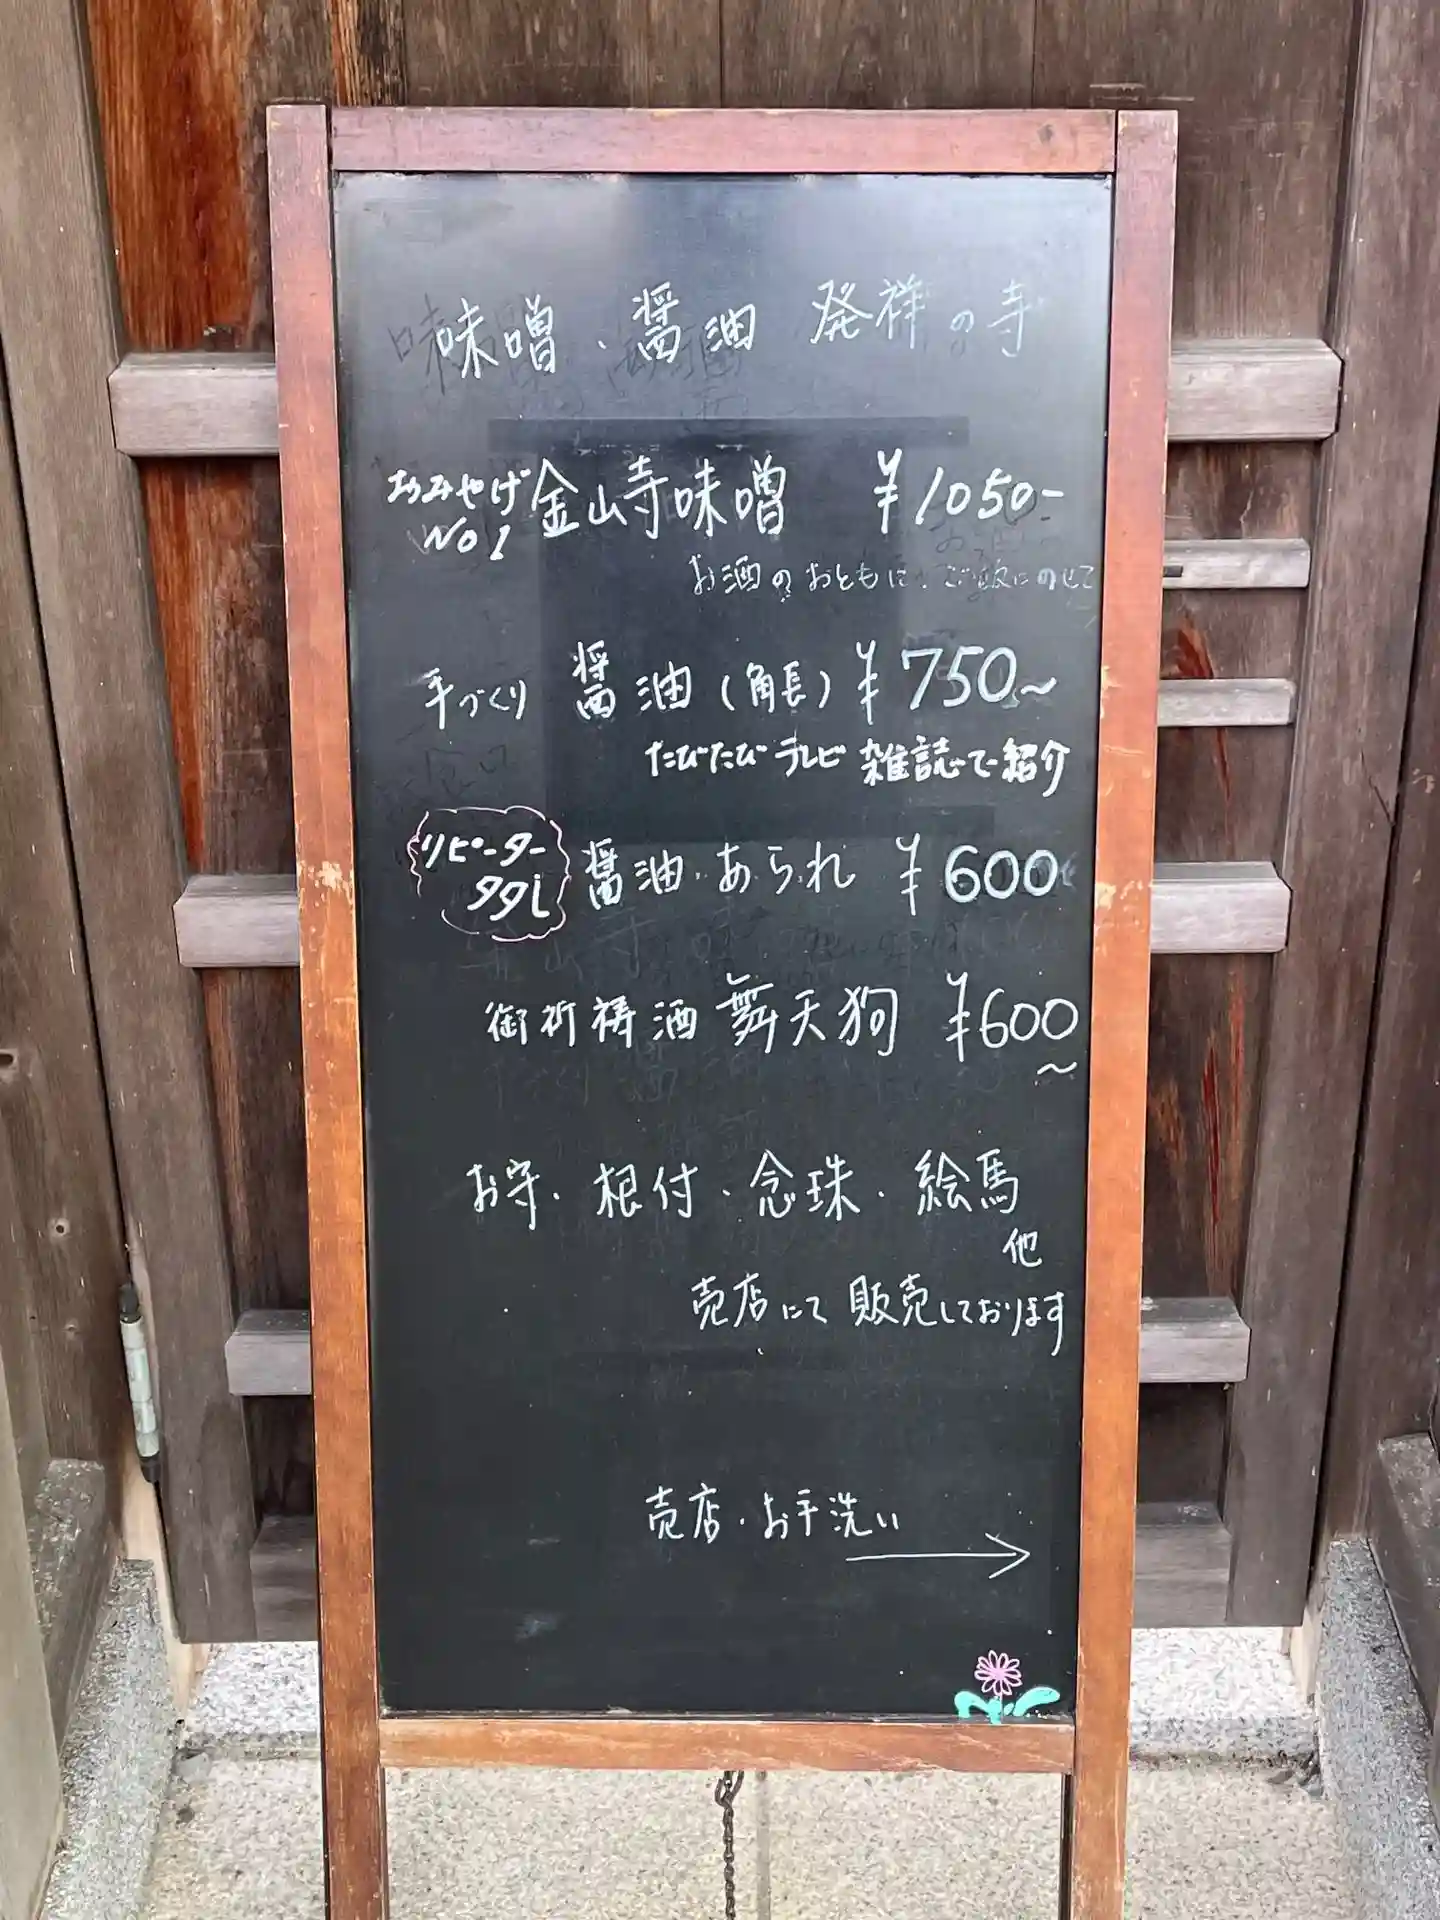 味噌・醤油 発祥の寺
おみやげ No1 金山寺味噌 ¥1050-
お酒のおともに!ご飯にのせて
手づくり 醤油(角長) ¥750~
たびたびテレビ雑誌で紹介
リピーター 醤油あられ ¥600
御祈祷酒 舞天狗 ¥600~
お守・根付・念珠・絵馬
他
売店にて販売しております
売店・お手洗い